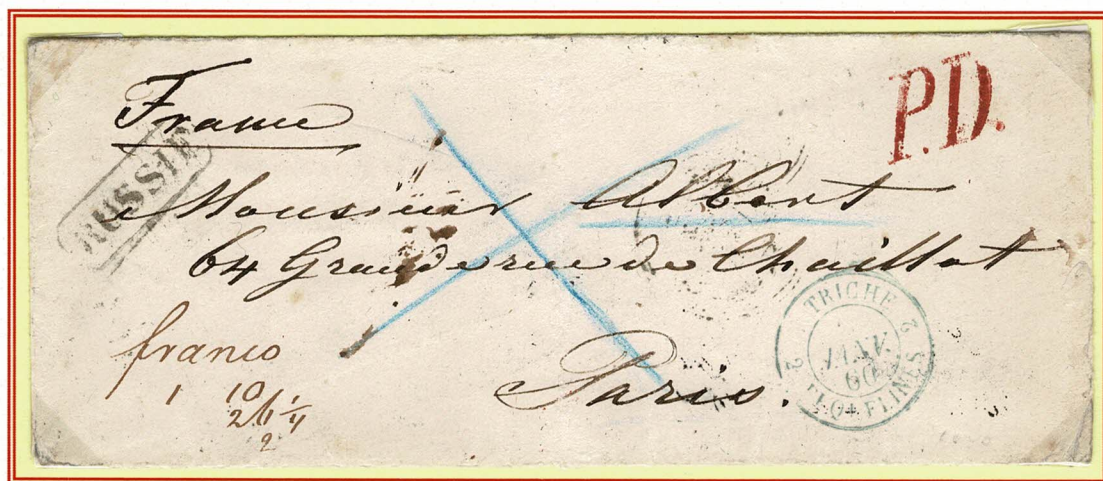 France
P.D.
RUSSIE
Monsieur Albert
64 Grande rue de Chaillot
Paris.
franco
1 10
2
TRICHE
2 JANV. 2
60
FLINES